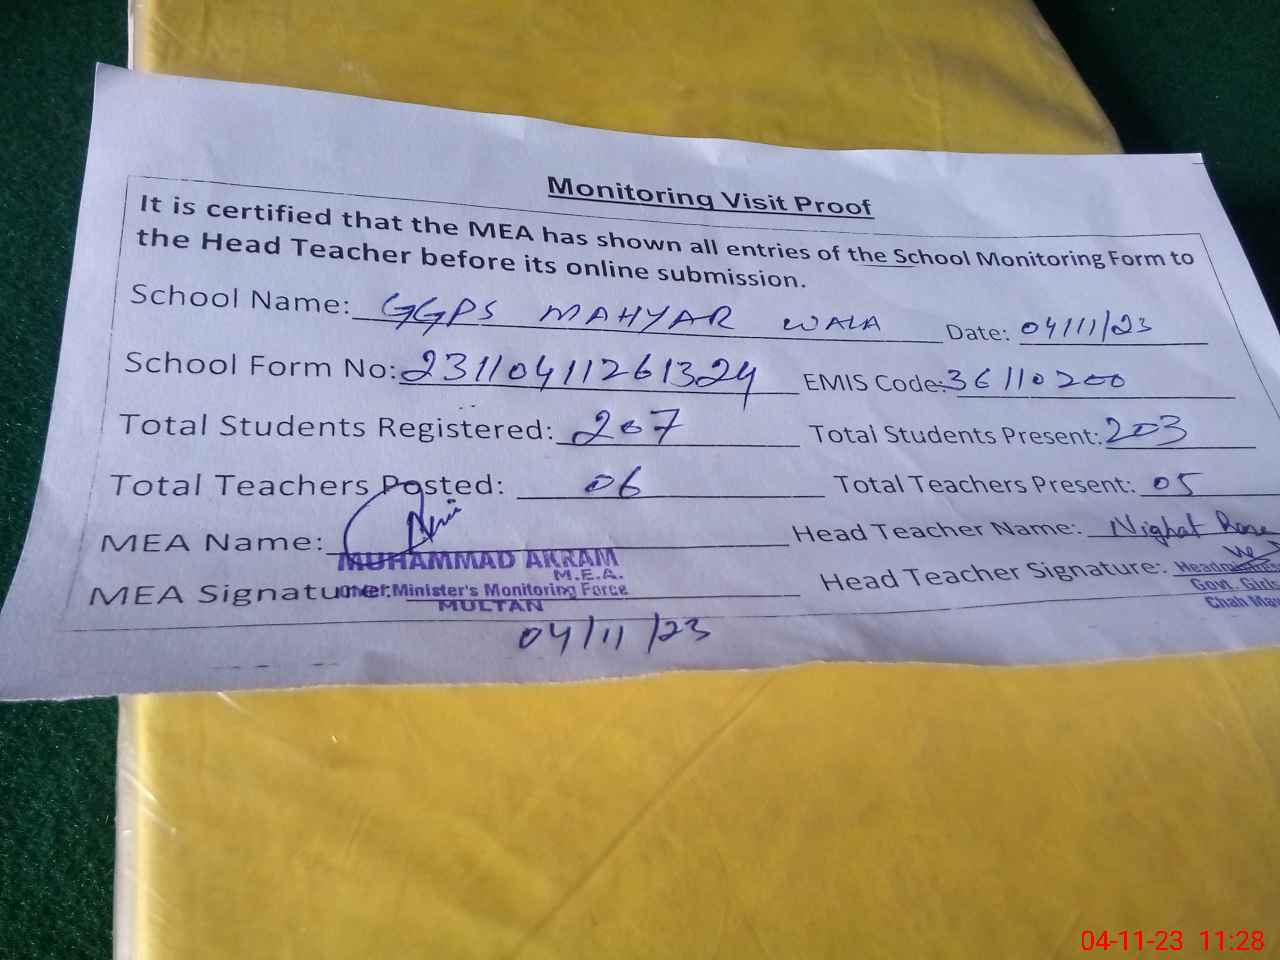 Monitoring Visit Proof
It is certified that the MEA has shown all entries of the School Monitoring Form to
the Head Teacher before its online submission.
School Name: GGPS MAHYAR WALA Date: 04/11/23
School Form No: 23110411261324 EMIS Code: 36110200
Total Students Registered: 207 Total Students Present: 203
Total Teachers Posted: 06 Total Teachers Present: 05
MEA Name: Head Teacher Name: Nighat
MUHAMMAD AKRAM
M.E.A.
MEA Signature: Minister's Monitoring Force Head Teacher Signature:
MULTAN
Govt. Girls
Chah
04/11/23
04-11-23 11:28